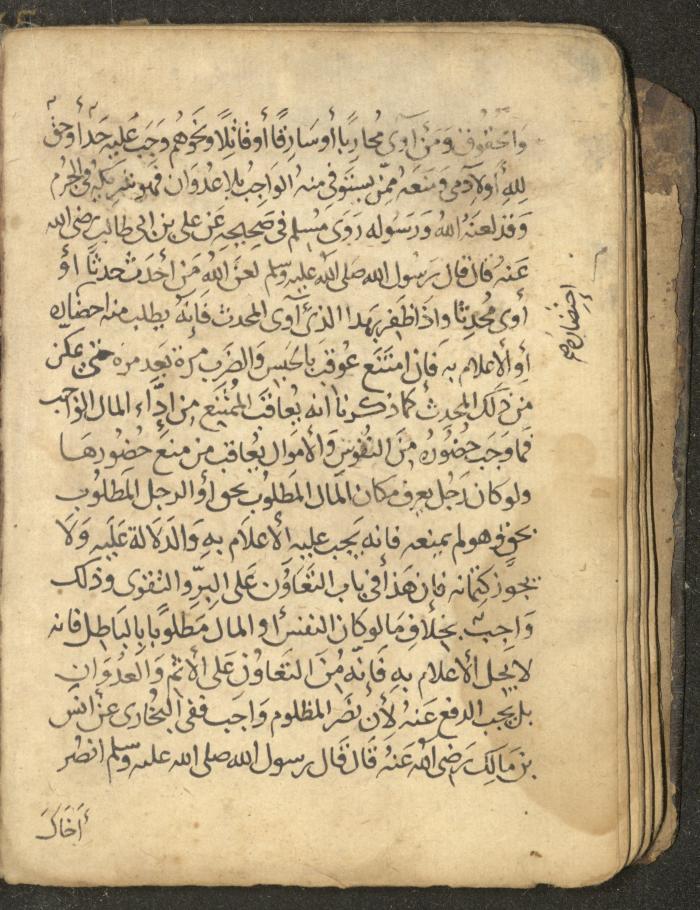 والحقوق ومن آوى محاربا أو سارقا أو قاتلا ونحوهم وجب عليه حد أو حق
لله أو لآدمي ومنعه ممن يستوفى منه الواجب بلا عدوان فهو شريكه في الجرم
وقد لعنه الله ورسوله روى مسلم في صحيحه عن علي بن ابي طالب رضي الله
عنه قال قال رسول الله صلى الله عليه وسلم لعن الله من أحدث حدثا أو
أوى محدثا واذا ظفر بهذا الذي آوى المحدث فانه يطلب منه احضاره
إحضاره صح
أو الاعلام به فان امتنع عوقب بالحبس والضرب مرة بعد مرة حتى يمكن
من ذلك المحدث كما ذكرنا انه يعاقب الممتنع من اداء المال الواجب
فما وجب حضوره من النفوس والأموال يعاقب من منع حضورها
ولو كان رجل يعرف مكان المال المطلوب بحق أو الرجل المطلوب
بحق وهو لم يمنعه فانه يجب عليه الأعلام به والدلالة عليه ولا
يجوز كتمانه فان هذا في باب التعاون على البر والتقوى وذلك
واجب بخلاف ما لو كان النفس أو المال مطلوبا بالباطل فانه
لا يحل الأعلام به فانه من التعاون على الأثم والعدوان
بل يجب الدفع عنه لأن نصر المظلوم واجب ففي البخاري عن انس
بن مالك رضي الله عنه قال قال رسول الله صلى الله عليه وسلم انصر
أخاك